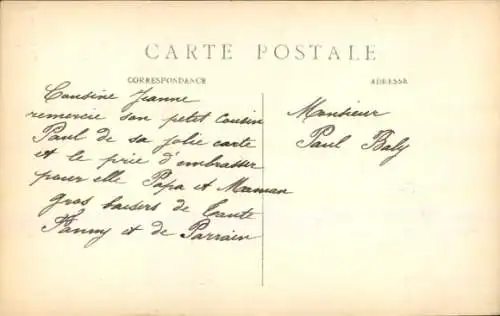 CARTE POSTALE
CORRESPONDANCE
ADRESSE
Cousine Jeanne
remercie son petit cousin
Paul de sa jolie carte
et le prie d'embrasser
pour elle Papa et Maman
gros baisers de tante
Fanny et de Parrain
Monsieur
Paul Baly